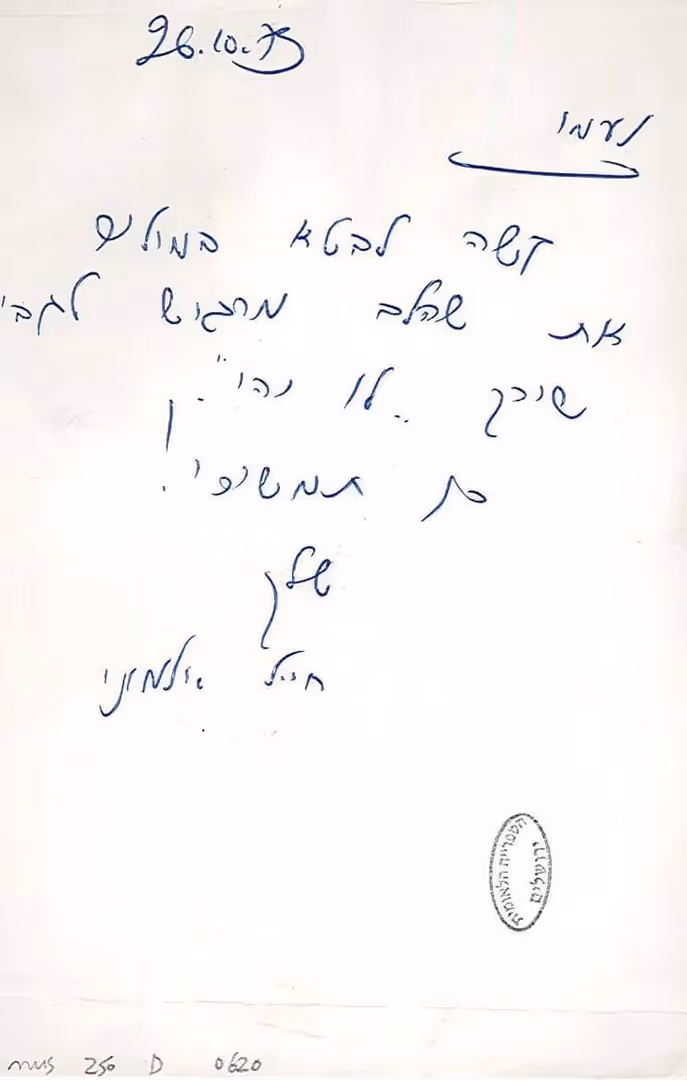 26.10.73
נעמי
קשה לבטא במולים
את שהלב מרגיש לגבי
שירך „לו יהי".
כן תמשיכי!
שלך
חייל אלמוני
הספרייה הלאומית
ירושלים
mus 250 D 0620